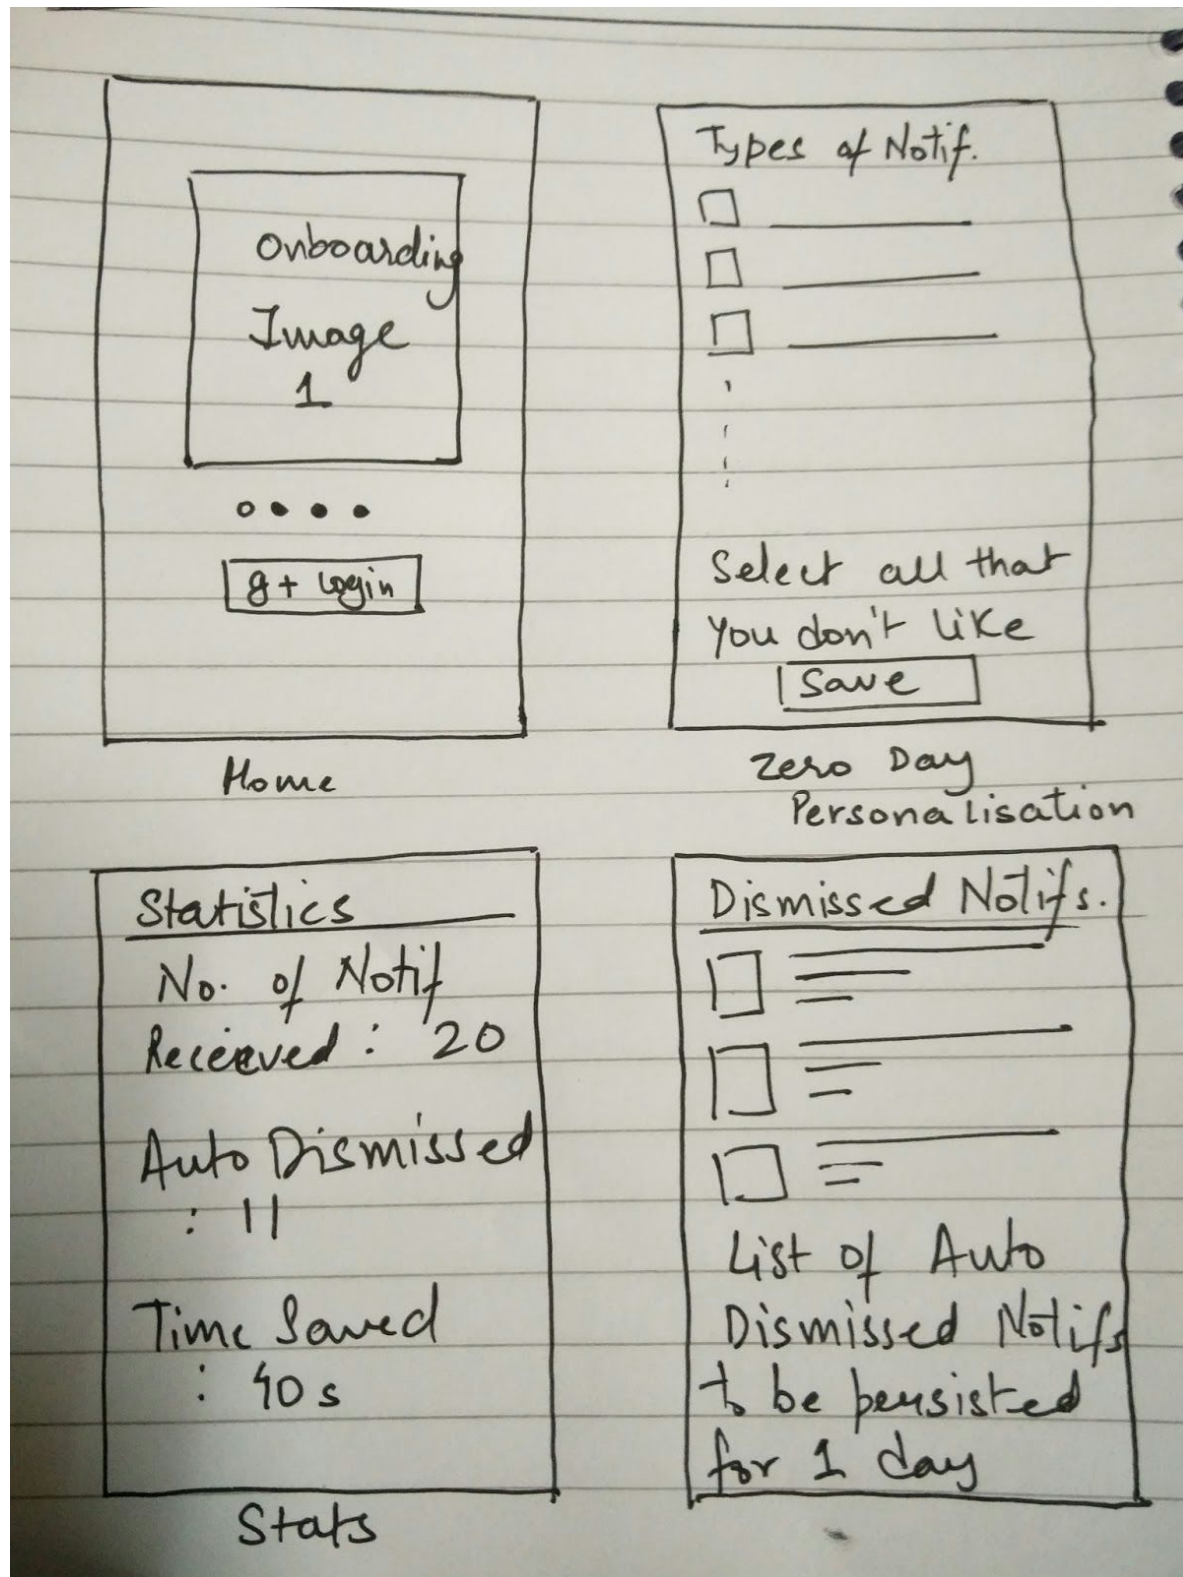 Onboarding
Image
1
g+ login
Home
Types of Notif.
Select all that
you don't like
Save
Zero Day
Personalisation
Statistics
No. of Notif
Receieved : 20
Auto Dismissed
: 11
Time Saved
: 40 s
Stats
Dismissed Notifs.
List of Auto
Dismissed Notifs
to be persisted
for 1 day